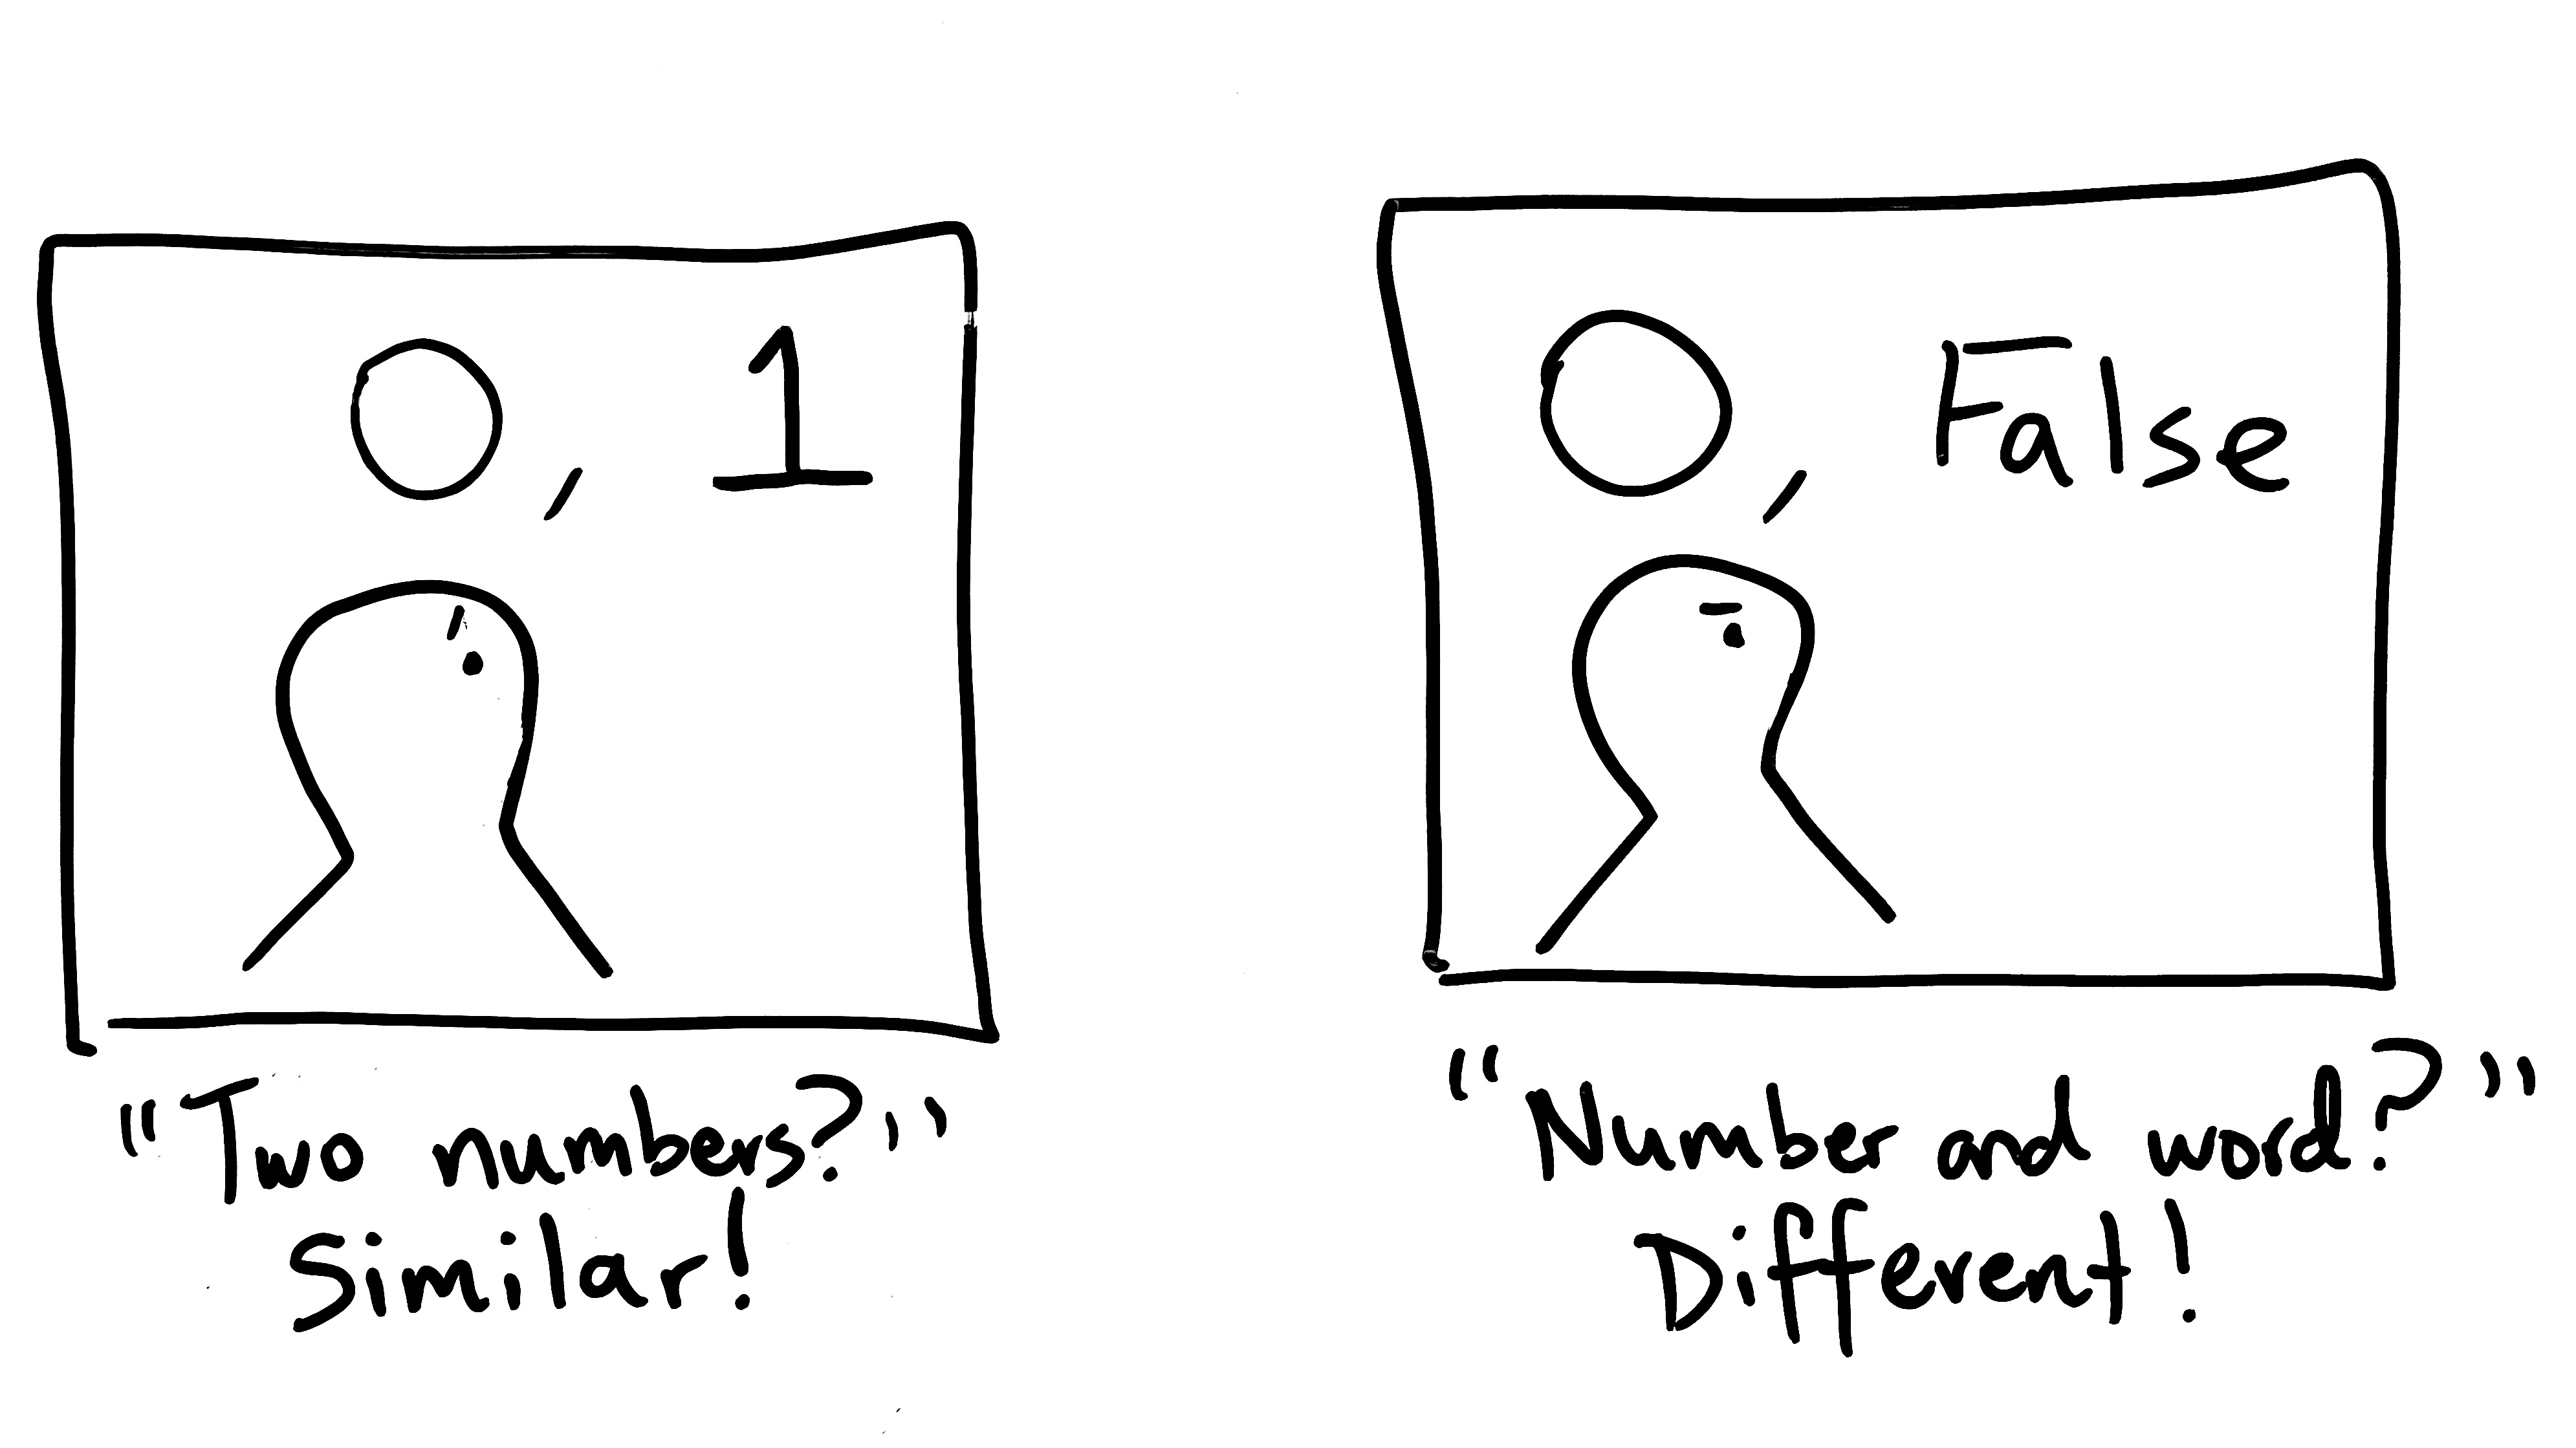 0, 1
"Two numbers?"
Similar!
0, False
"Number and word?"
Different!